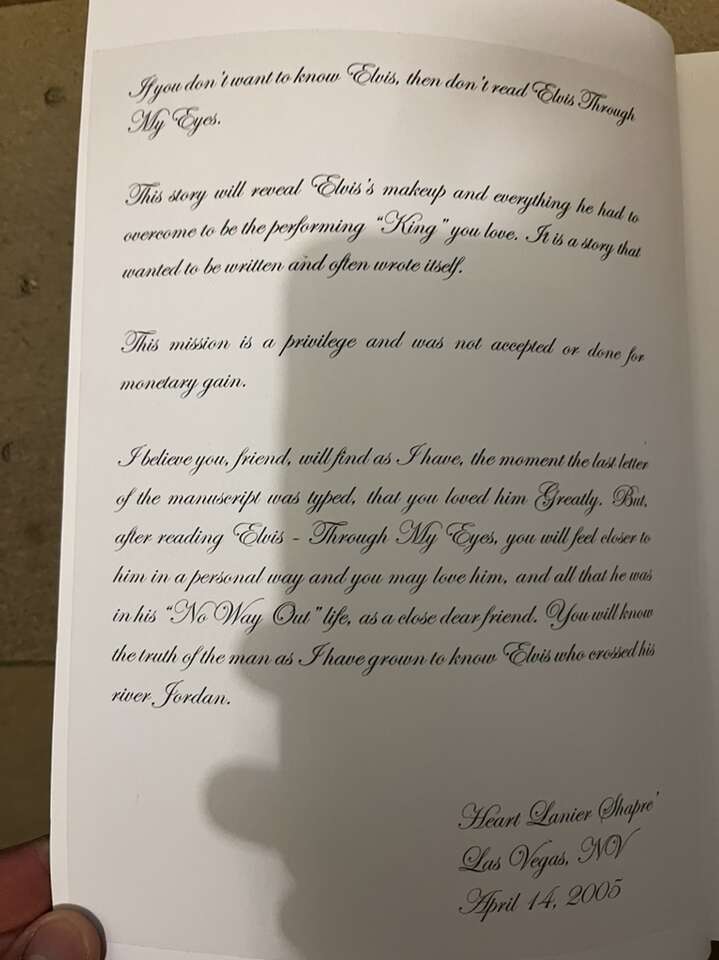 If you don't want to know Elvis, then don't read Elvis Through
My Eyes.
This story will reveal Elvis's makeup and everything he had to
overcome to be the performing "King" you love. It is a story that
wanted to be written and often wrote itself.
This mission is a privilege and was not accepted or done for
monetary gain.
I believe you, friend, will find as I have, the moment the last letter
of the manuscript was typed, that you loved him Greatly. But,
after reading Elvis - Through My Eyes, you will feel closer to
him in a personal way and you may love him, and all that he was
in his "No Way Out" life, as a close dear friend. You will know
the truth of the man as I have grown to know Elvis who crossed his
river Jordan.
Heart Lanier Shapre'
Las Vegas, NV
April 14, 2005